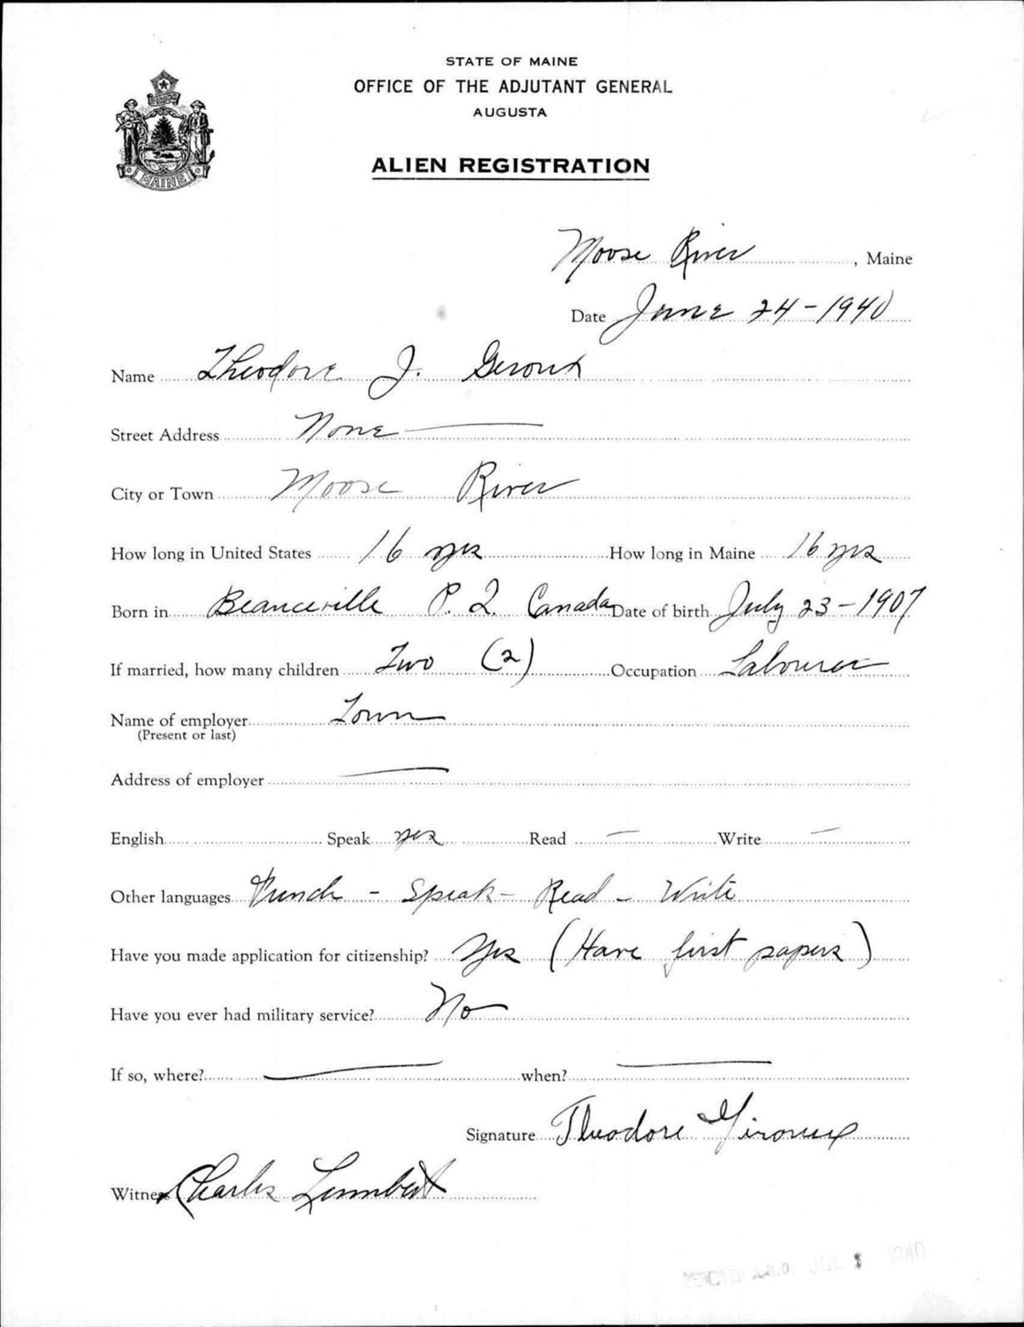 STATE OF MAINE
OFFICE OF THE ADJUTANT GENERAL
AUGUSTA
MAINE
ALIEN REGISTRATION
Moose River, Maine
Date June 24-1940
Name Theodore J. Giroux
Street Address None
City or Town Moose River
How long in United States 16 yrs How long in Maine 16 yrs
Born in Beauceville P. Q. Canada Date of birth July 23-1907
If married, how many children Two (2) Occupation Labourer
Name of employer Town
(Present or last)
Address of employer —
English Speak yes Read — Write —
Other languages French - Speak - Read - Write
Have you made application for citizenship? Yes (Have first papers)
Have you ever had military service? No
If so, where? — when? —
Signature Theodore Giroux
Witness Charles Lambert